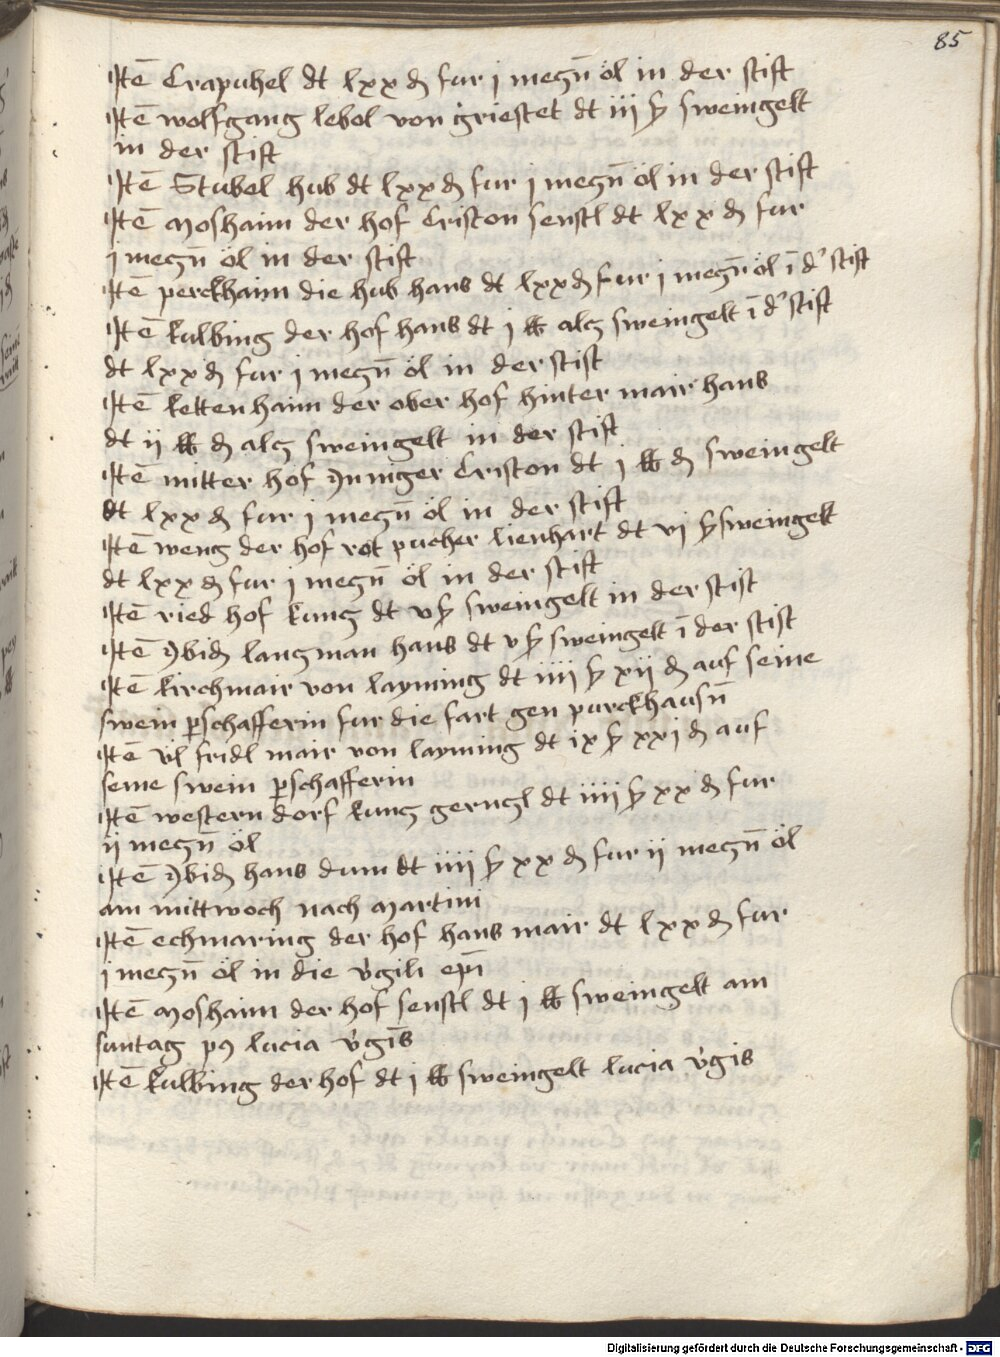 85
Itē Crapuhel dt lxx ₰ fur j meczn̄ öl in der stift
Itē wolfgang lebol von griestet dt iij ß sweingelt
in der stift
Itē Stubel hub dt lxx ₰ fur j meczn̄ öl in der stift
Itē Moshaim der hof Criston senstl dt lxx ₰ fur
j meczn̄ öl in der stift
Itē perckhaim die hub hans dt lxx ₰ fur j meczn̄ öl ī d' stift
Itē kulbing der hof hans dt j lb alcz sweingelt ī d' stift
dt lxx ₰ fur j meczn̄ öl in der stift
Itē kettenhaim der ober hof hinter mair hans
dt ij lb ₰ alcz sweingelt in der stift
Itē mitter hof Criston dt j lb ₰ sweingelt
dt lxx ₰ fur j meczn̄ öl in der stift
Itē weng der hof rot pucher lienhart dt vj ß sweingelt
dt lxx ₰ fur j meczn̄ öl in der stift
Itē ried hof kuncz dt v ß sweingelt in der stift
Itē langman hans dt v ß sweingelt ī der stift
Itē kirchmair von layming dt iiij ß xij ₰ auf seine
swein pschafferin fur die fart gen purckhausn̄
Itē vl fridl mair von layming dt ix ß xxj ₰ auf
seine swein pschafferin
Itē westerndorf kuncz dt iiij ß xx ₰ fur
ij meczn̄ öl
Itē hans dum dt iiij ß xx ₰ fur ij meczn̄ öl
am mittwoch nach Martini
Itē echmaring der hof hans mair dt lxx ₰ fur
j meczn̄ öl in die v'gili ep̄i
Itē Moshaim der hof senstl dt j lb sweingelt am
suntag pꝯ lucia v'gīs
Itē kulbing der hof dt j lb sweingelt lucia v'gis
Digitalisierung gefördert durch die Deutsche Forschungsgemeinschaft - DFG